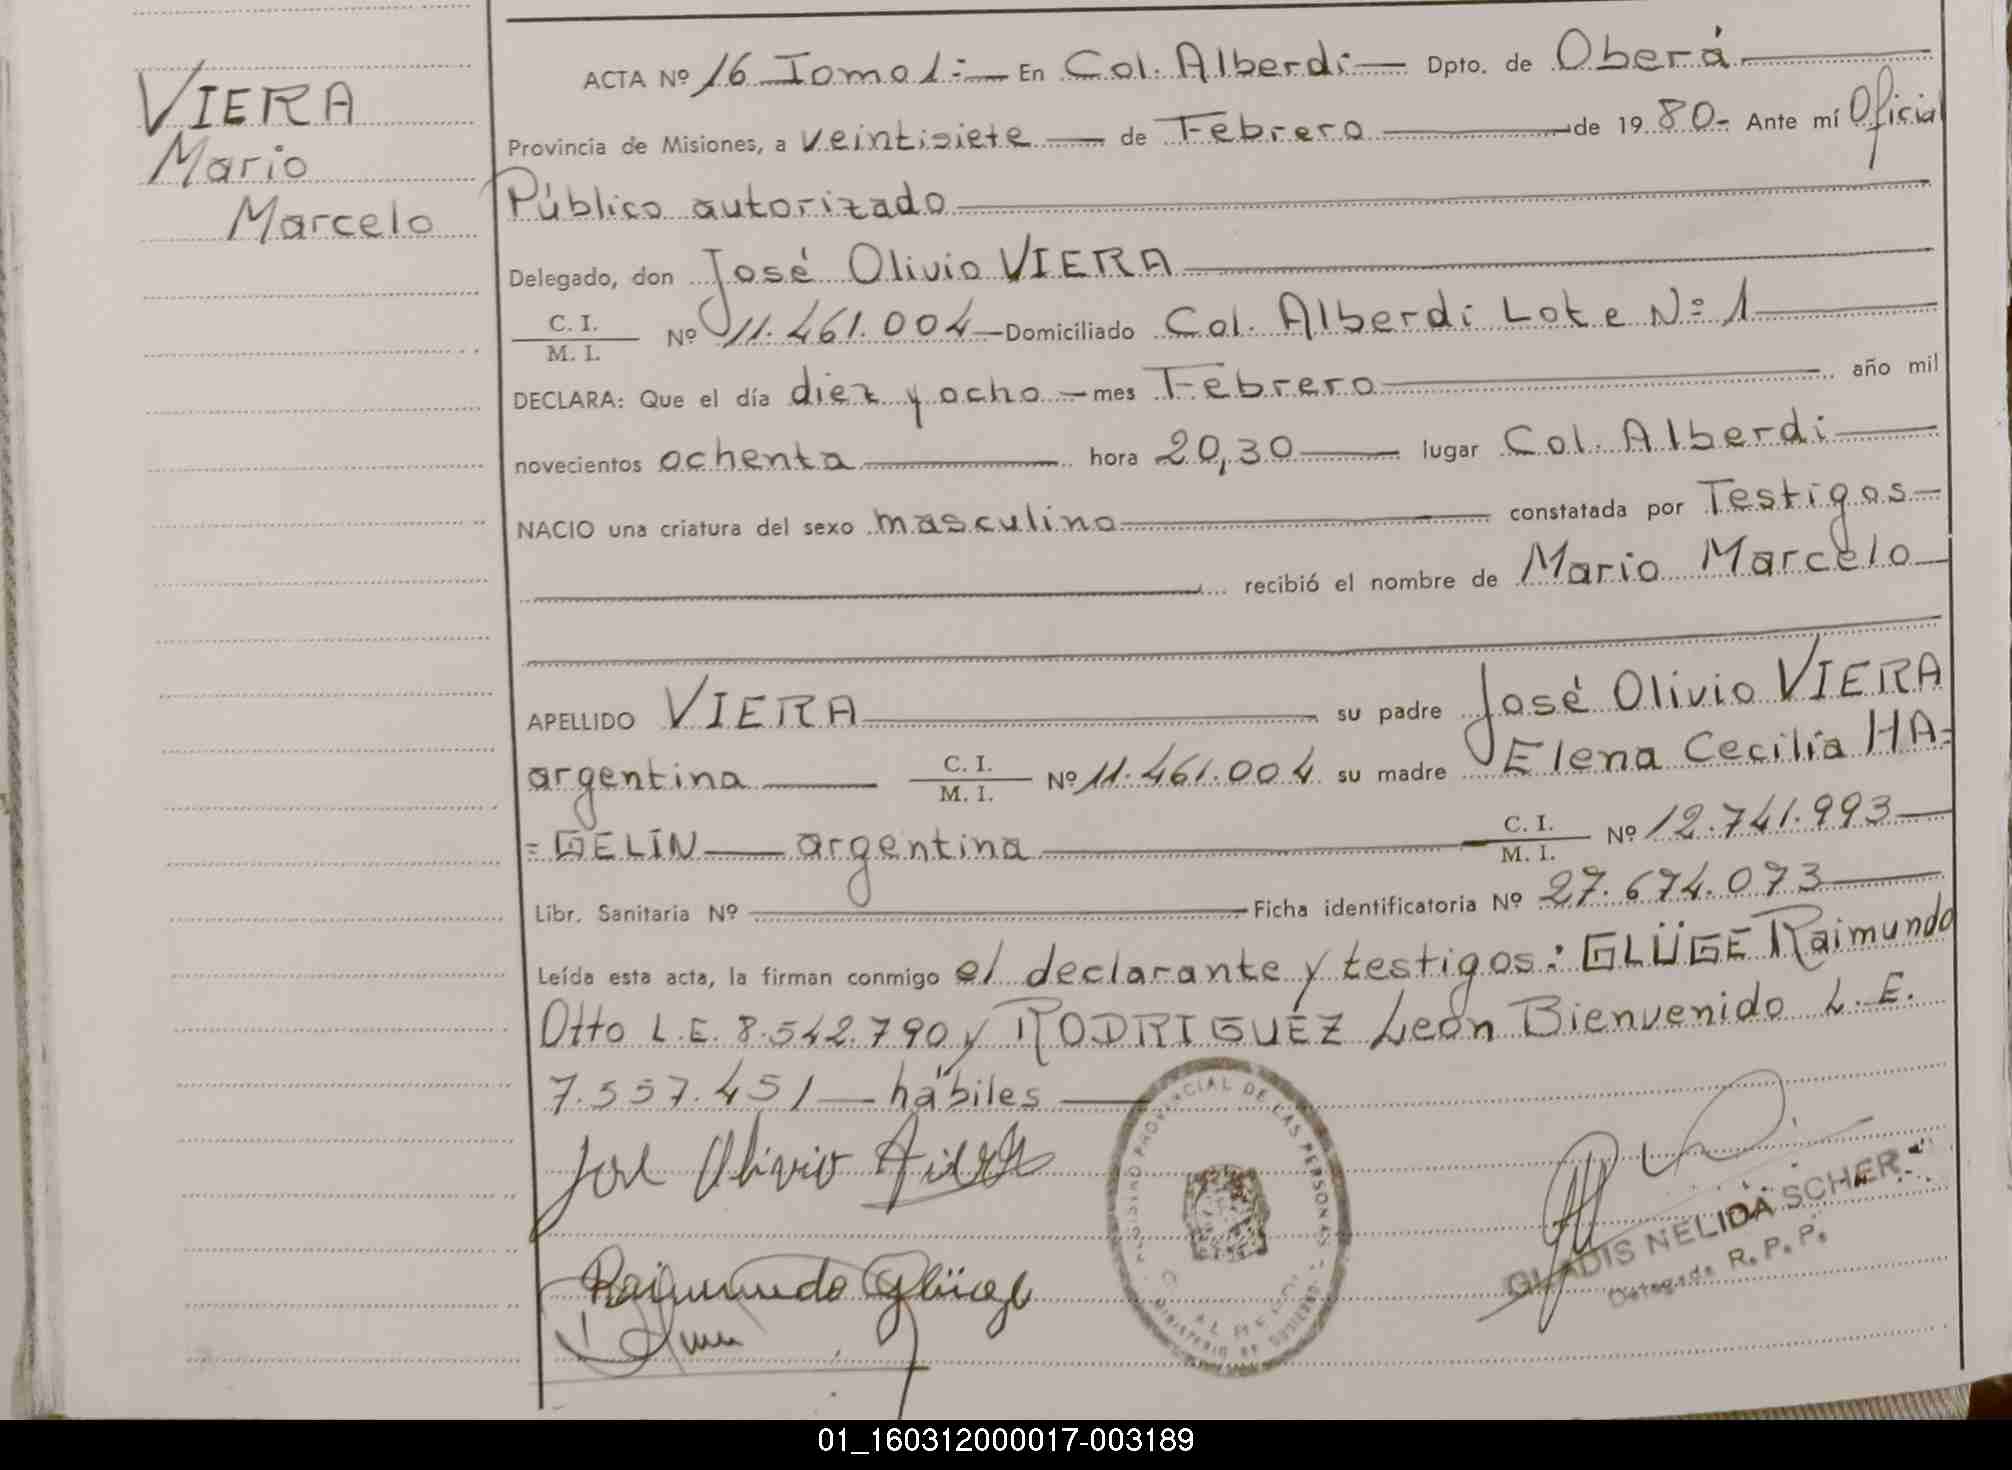 VIERA
Mario
Marcelo
ACTA Nº 16 Tomo 1:- En Col. Alberdi Dpto. de Oberá
Provincia de Misiones, a veintisiete de Febrero de 1980- Ante mí Oficial
Público autorizado
Delegado, don José Olivio VIERA
C. I.
M. I. Nº 11.461.004 Domiciliado Col. Alberdi Lote Nº 1
DECLARA: Que el día diez y ocho mes Febrero año mil
novecientos ochenta hora 20,30 lugar Col. Alberdi
NACIO una criatura del sexo masculino constatada por Testigos
recibió el nombre de Mario Marcelo
APELLIDO VIERA su padre José Olivio VIERA
argentina C. I. M. I. Nº 11.461.004 su madre Elena Cecilia HA=
=GELIN argentina C. I. M. I. Nº 12.741.993
Libr. Sanitaria Nº Ficha identificatoria Nº 27.674.073
Leída esta acta, la firman conmigo el declarante y testigos: GLÜGE Raimundo
Otto L.E. 8.542.790 y RODRIGUEZ León Bienvenido L.E.
7.557.451 hábiles
José Olivio Viera
Raimundo Glüge
REGISTRO PROVINCIAL DE LAS PERSONAS
MINISTERIO DE GOBIERNO
GLADIS NELIDA SCHER
Delegada R. P. P.
01_160312000017-003189